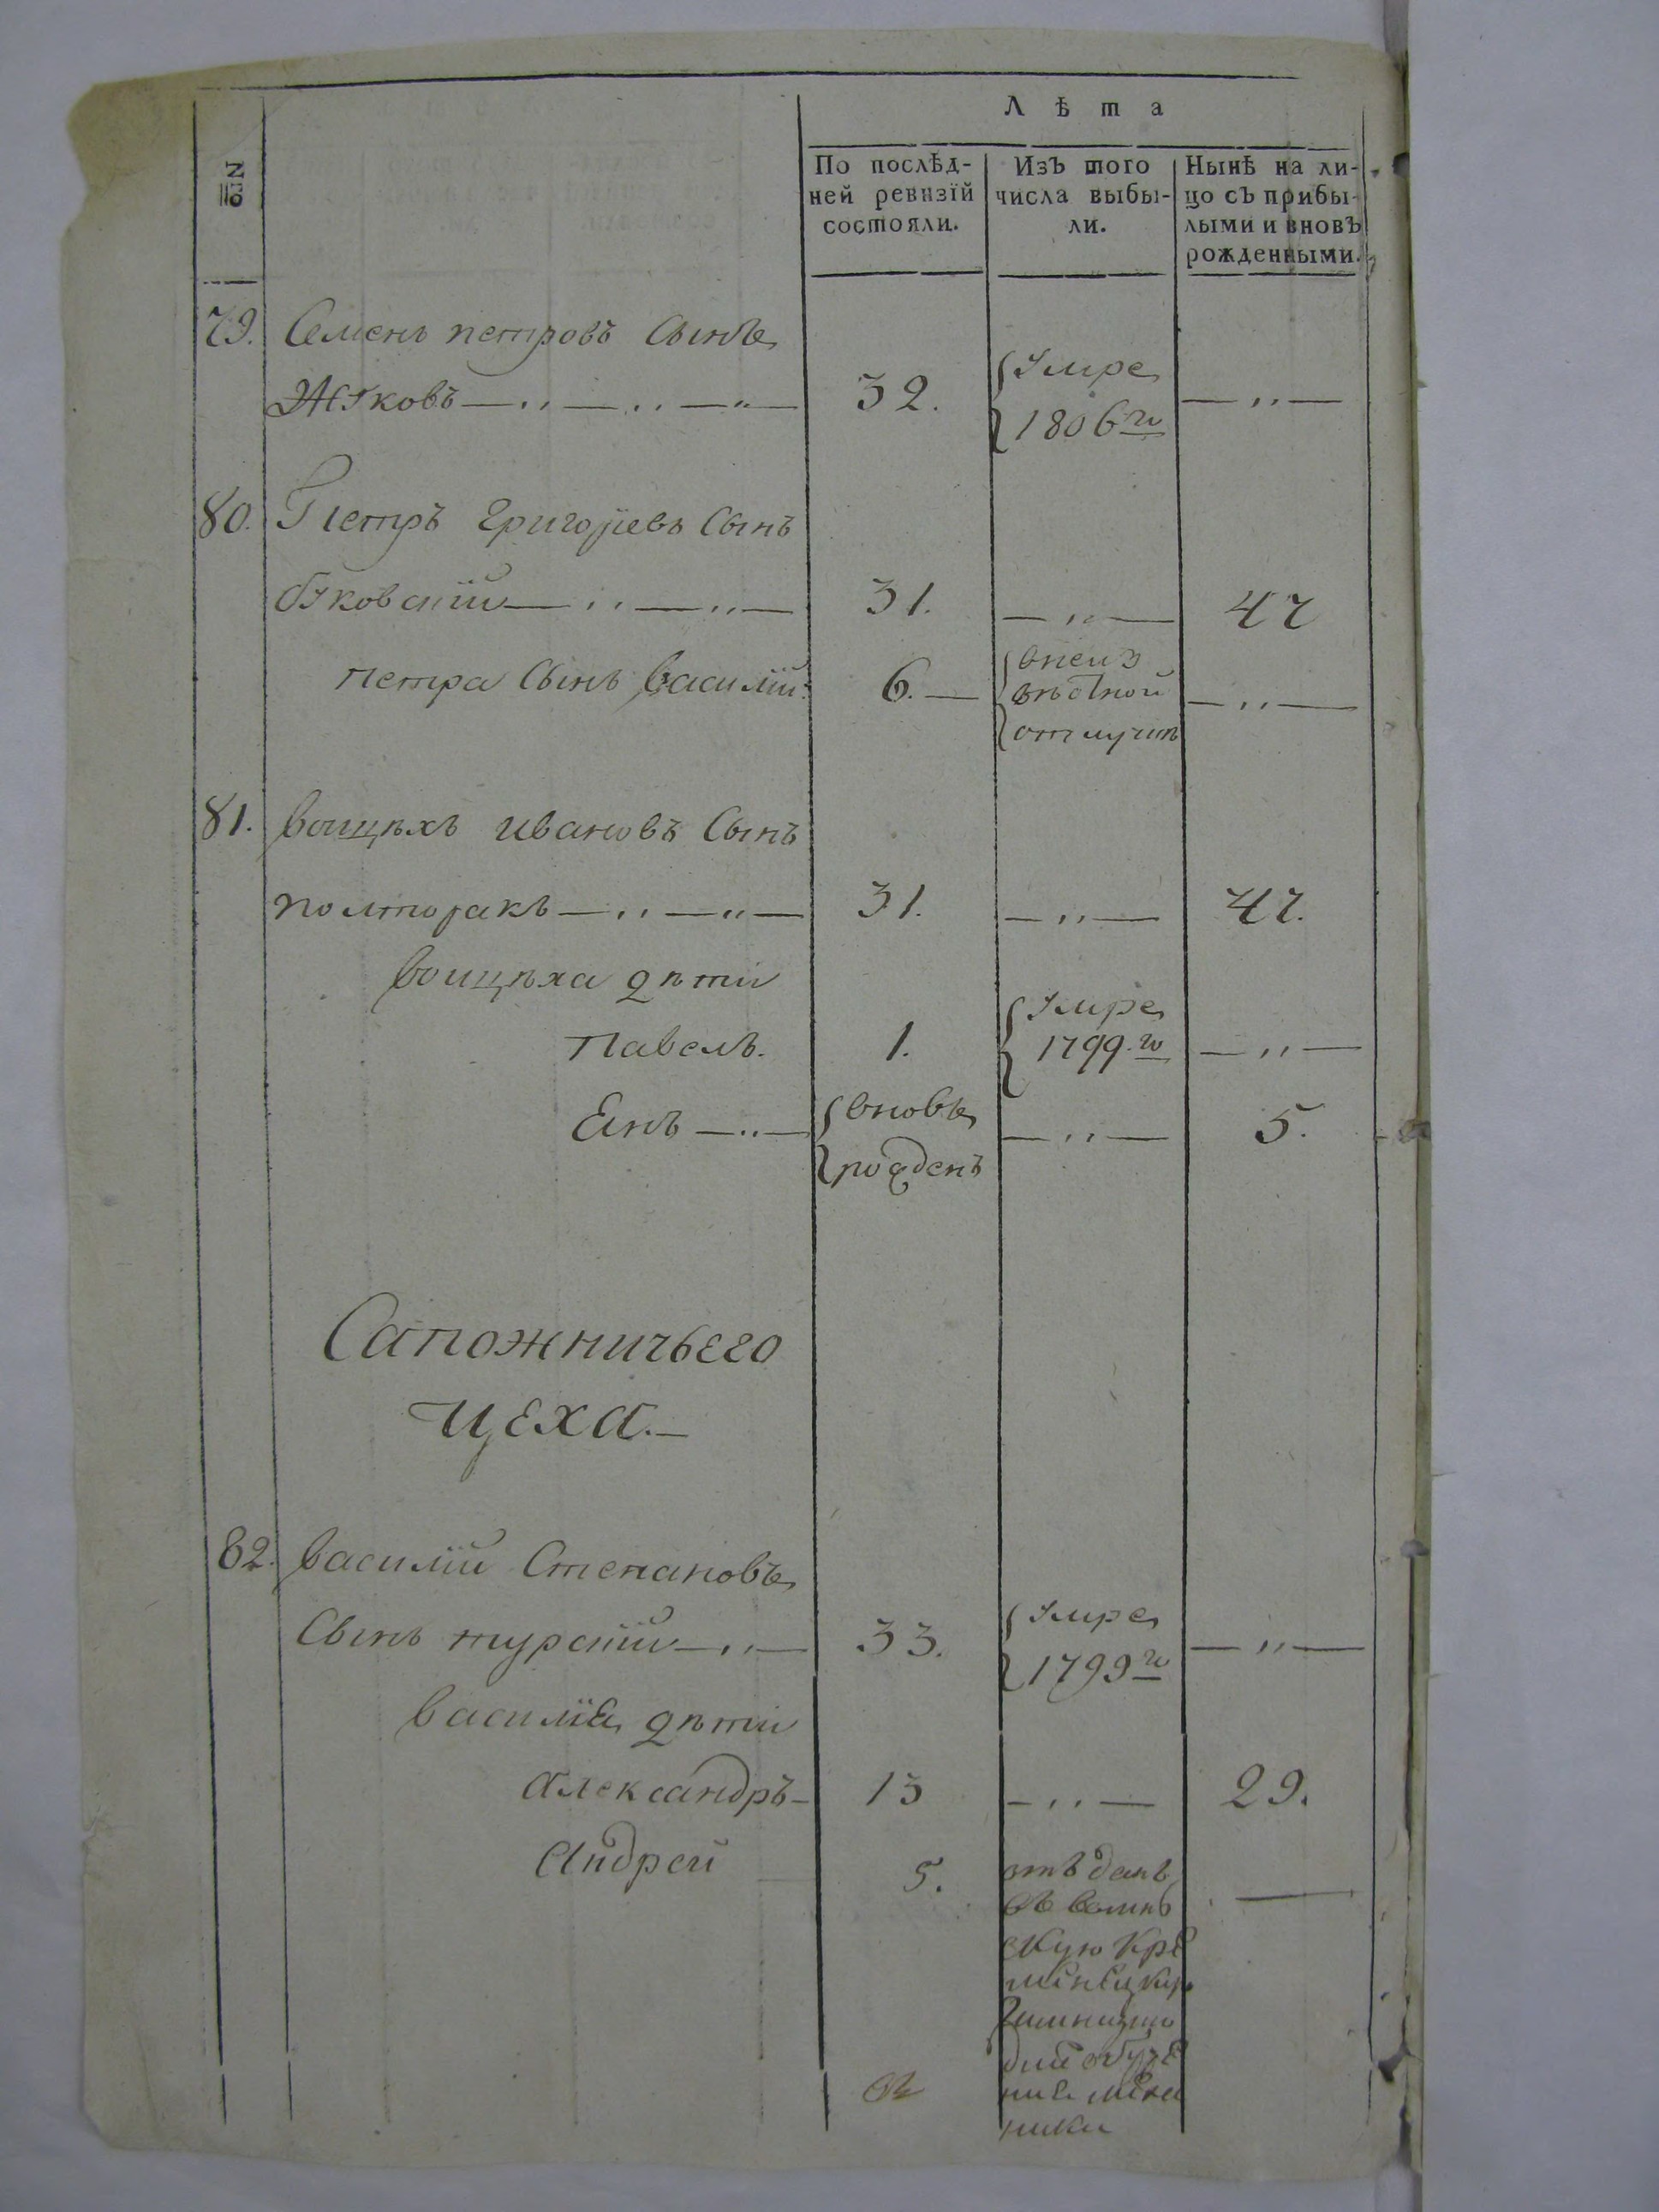 Лѣта
№
По послѣд-
ней ревизїй
состояли.
Изъ того
числа выбы-
ли.
Нынѣ на ли-
цо съ прибы-
лыми и вновь
рожденными.
79. Семенъ петровъ Сынъ
Жуковъ — 32. умре 1806го —
80. Петръ григорїевъ Сынъ
буковскїй — 31. — 47
петра Сынъ василїй: 6. — внеиз
вѣстной
отлучкѣ —
81. воицѣхъ ивановъ Сынъ
полторакъ — 31. — 47.
воицѣха дѣти
павелъ. 1. умре 1799.го —
Янъ — вновь — 5.
рожденъ
Сапожничьего
цеха. —
82. василїй Степановъ
Сынъ турскїй — 33. умре 1799го —
василїя дѣти
Александръ — 13 — 29.
Андрей 5. отъданъ —
въ волин
скую Кре
менецкую
Гимназию
для обуче
ния меха
ники